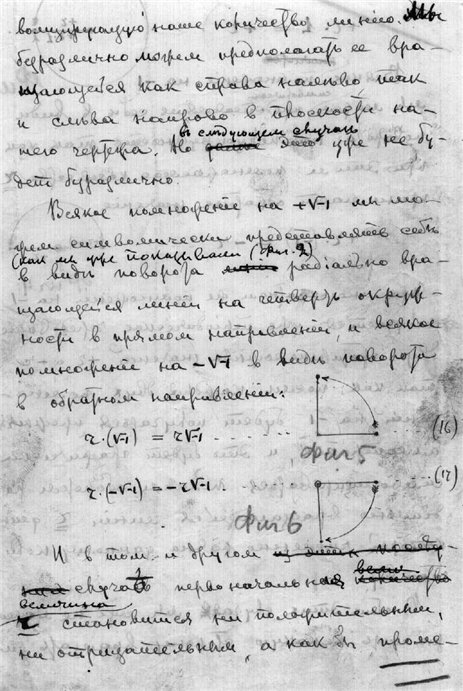 волизирующую наше количество линию. Мы
безразлично можем предполагать ее вра-
щающейся как справа налево так
и слева направо в плоскости на-
шего чертежа. Но в следующем случае это уже не бу-
дет безразлично.
Всякое помножение на +√-1 мы мо-
жем символически представлять себе
(как мы уже показывали (Фиг. 2)
в виде поворота радіально вра-
щающейся линіи на четверть окруж-
ности в прямом направленіи, и всякое
помножение на -√-1 в виде поворота
в обратном направленіи:
r·(√-1) = r√-1 . . . . . . . . . . (16)
Фиг 5
r·(-√-1) = -r√-1 . . . . (17)
Фиг 6
И в том и другом
случае первоначальная
величина
r становится ни положительным,
ни отрицательным, а как бы проме-